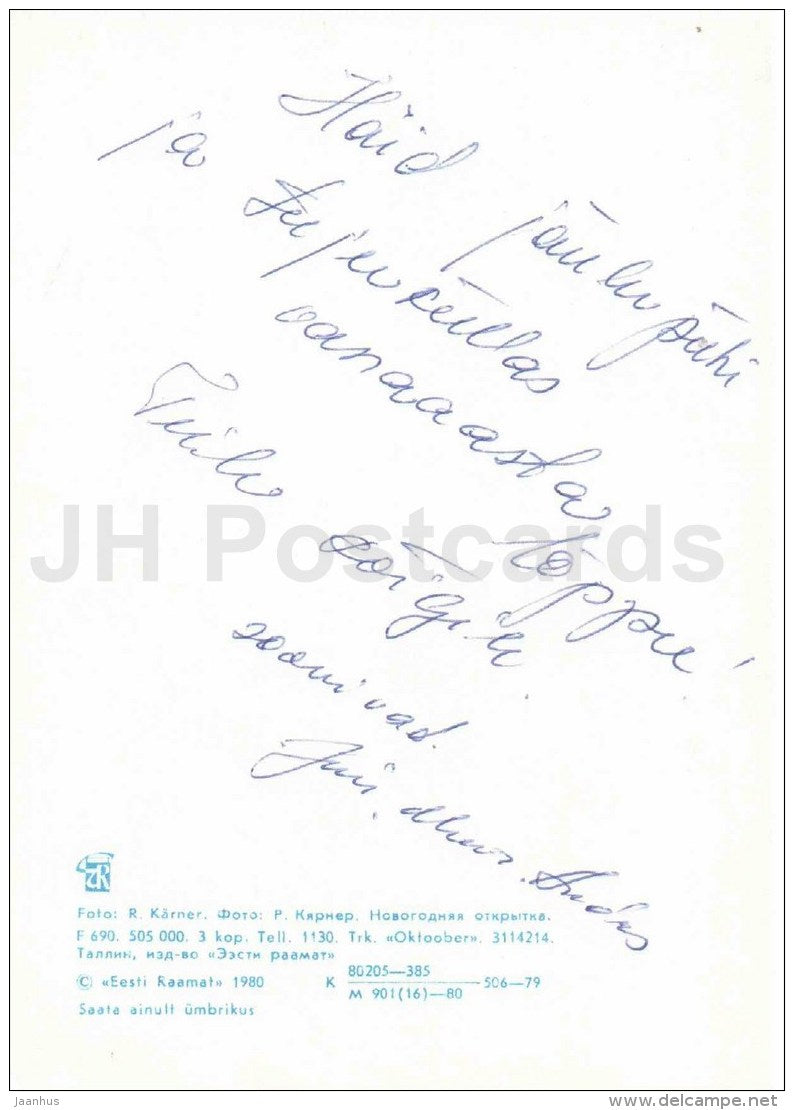 Häid jõulupühi
ja tujuküllas
vanaaasta lõppu!
Teile kõigile
soovivad.
Jüri, Andres
JH Postcards
Foto: R. Kärner. Фото: Р. Кярнер. Новогодняя открытка.
F 690. 505 000. 3 kop. Tell. 1130. Trk. «Oktoober». 3114214.
Таллин, изд-во «Ээсти раамат»
© «Eesti Raamat» 1980 К 80205—385 506—79
М 901(16)—80
Saata ainult ümbrikus
Jaanhus
delcampe.net